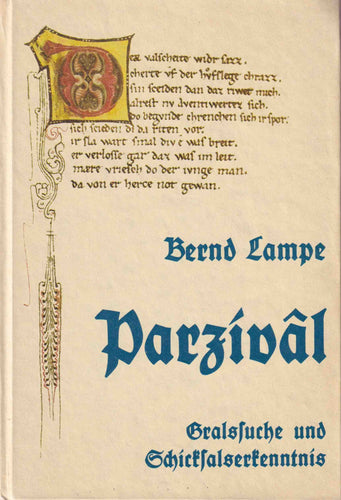 Der valscheite widr sazz.
cherte vf der hvfslege chrazz.
sin sceiden dan daz riwet mich.
alrest nv aventiwertez sich.
do begunde chrenchen sich ir spor.
sich scieden di da riten vor.
ir sla wart smal div e was breit.
er verlosse gar daz was im leit.
mære vriesch do der ivnge man.
da von er herce not gewan.
Bernd Lampe
Parzivâl
Gralssuche und
Schicksalserkenntnis